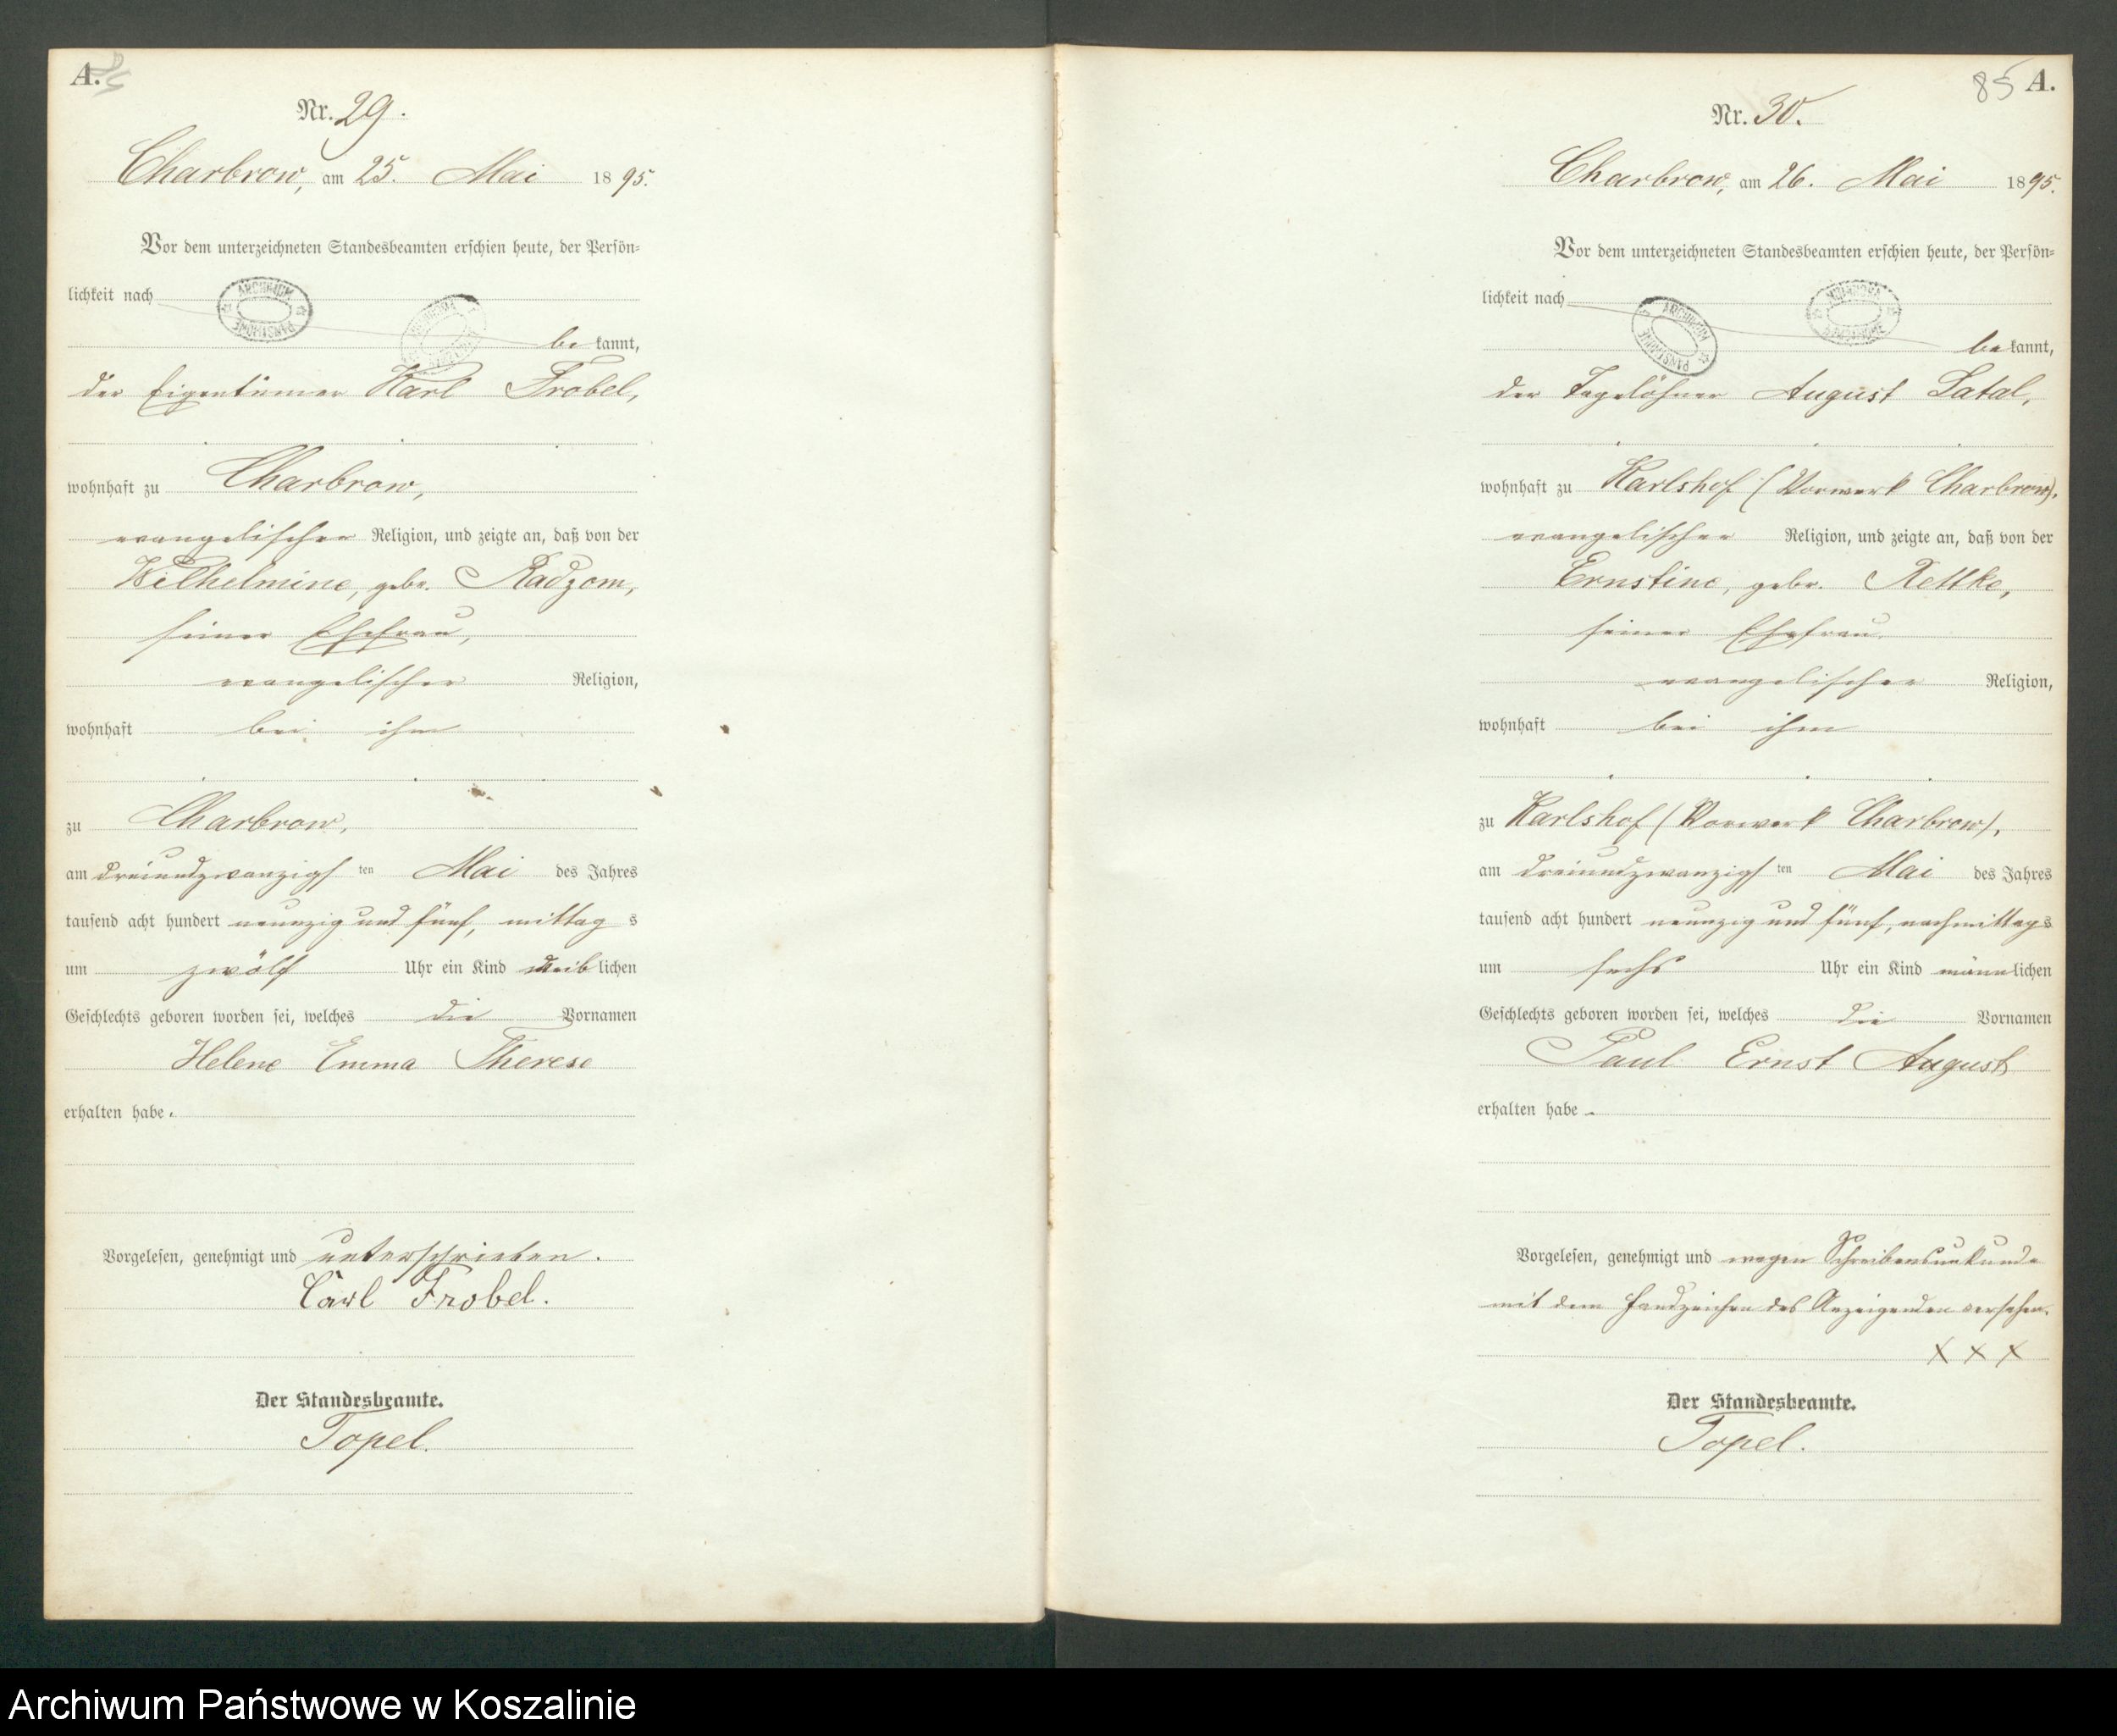 A.
Nr. 29.
Charbrow, am 25. Mai 1895.
Vor dem unterzeichneten Standesbeamten erschien heute, der Persön-
lichkeit nach
ARCHIWUM PAŃSTWOWE
bekannt,
der Eigentümer Karl Frobel,
wohnhaft zu Charbrow,
evangelischer Religion, und zeigte an, daß von der
Wilhelmine, gebr. Radzom,
seiner Ehefrau,
evangelischer Religion,
wohnhaft bei ihm
zu Charbrow,
am dreiundzwanzigsten Mai des Jahres
tausend acht hundert neunzig und fünf, mittags
um zwölf Uhr ein Kind weiblichen
Geschlechts geboren worden sei, welches die Vornamen
Helene Emma Therese
erhalten habe.
Vorgelesen, genehmigt und unterschrieben.
Carl Frobel.
Der Standesbeamte.
Topel.
85 A.
Nr. 30.
Charbrow, am 26. Mai 1895.
Vor dem unterzeichneten Standesbeamten erschien heute, der Persön-
lichkeit nach
ARCHIWUM PAŃSTWOWE
bekannt,
der Tagelöhner August Latal,
wohnhaft zu Karlshof (Vorwerk Charbrow),
evangelischer Religion, und zeigte an, daß von der
Ernstine, gebr. Rettke,
seiner Ehefrau
evangelischer Religion,
wohnhaft bei ihm
zu Karlshof (Vorwerk Charbrow),
am dreiundzwanzigsten Mai des Jahres
tausend acht hundert neunzig und fünf, nachmittags
um sechs Uhr ein Kind männlichen
Geschlechts geboren worden sei, welches die Vornamen
Paul Ernst August
erhalten habe.
Vorgelesen, genehmigt und wegen Schreibensunkunde
mit dem Handzeichen des Anzeigenden versehen.
X X X
Der Standesbeamte.
Topel.
Archiwum Państwowe w Koszalinie